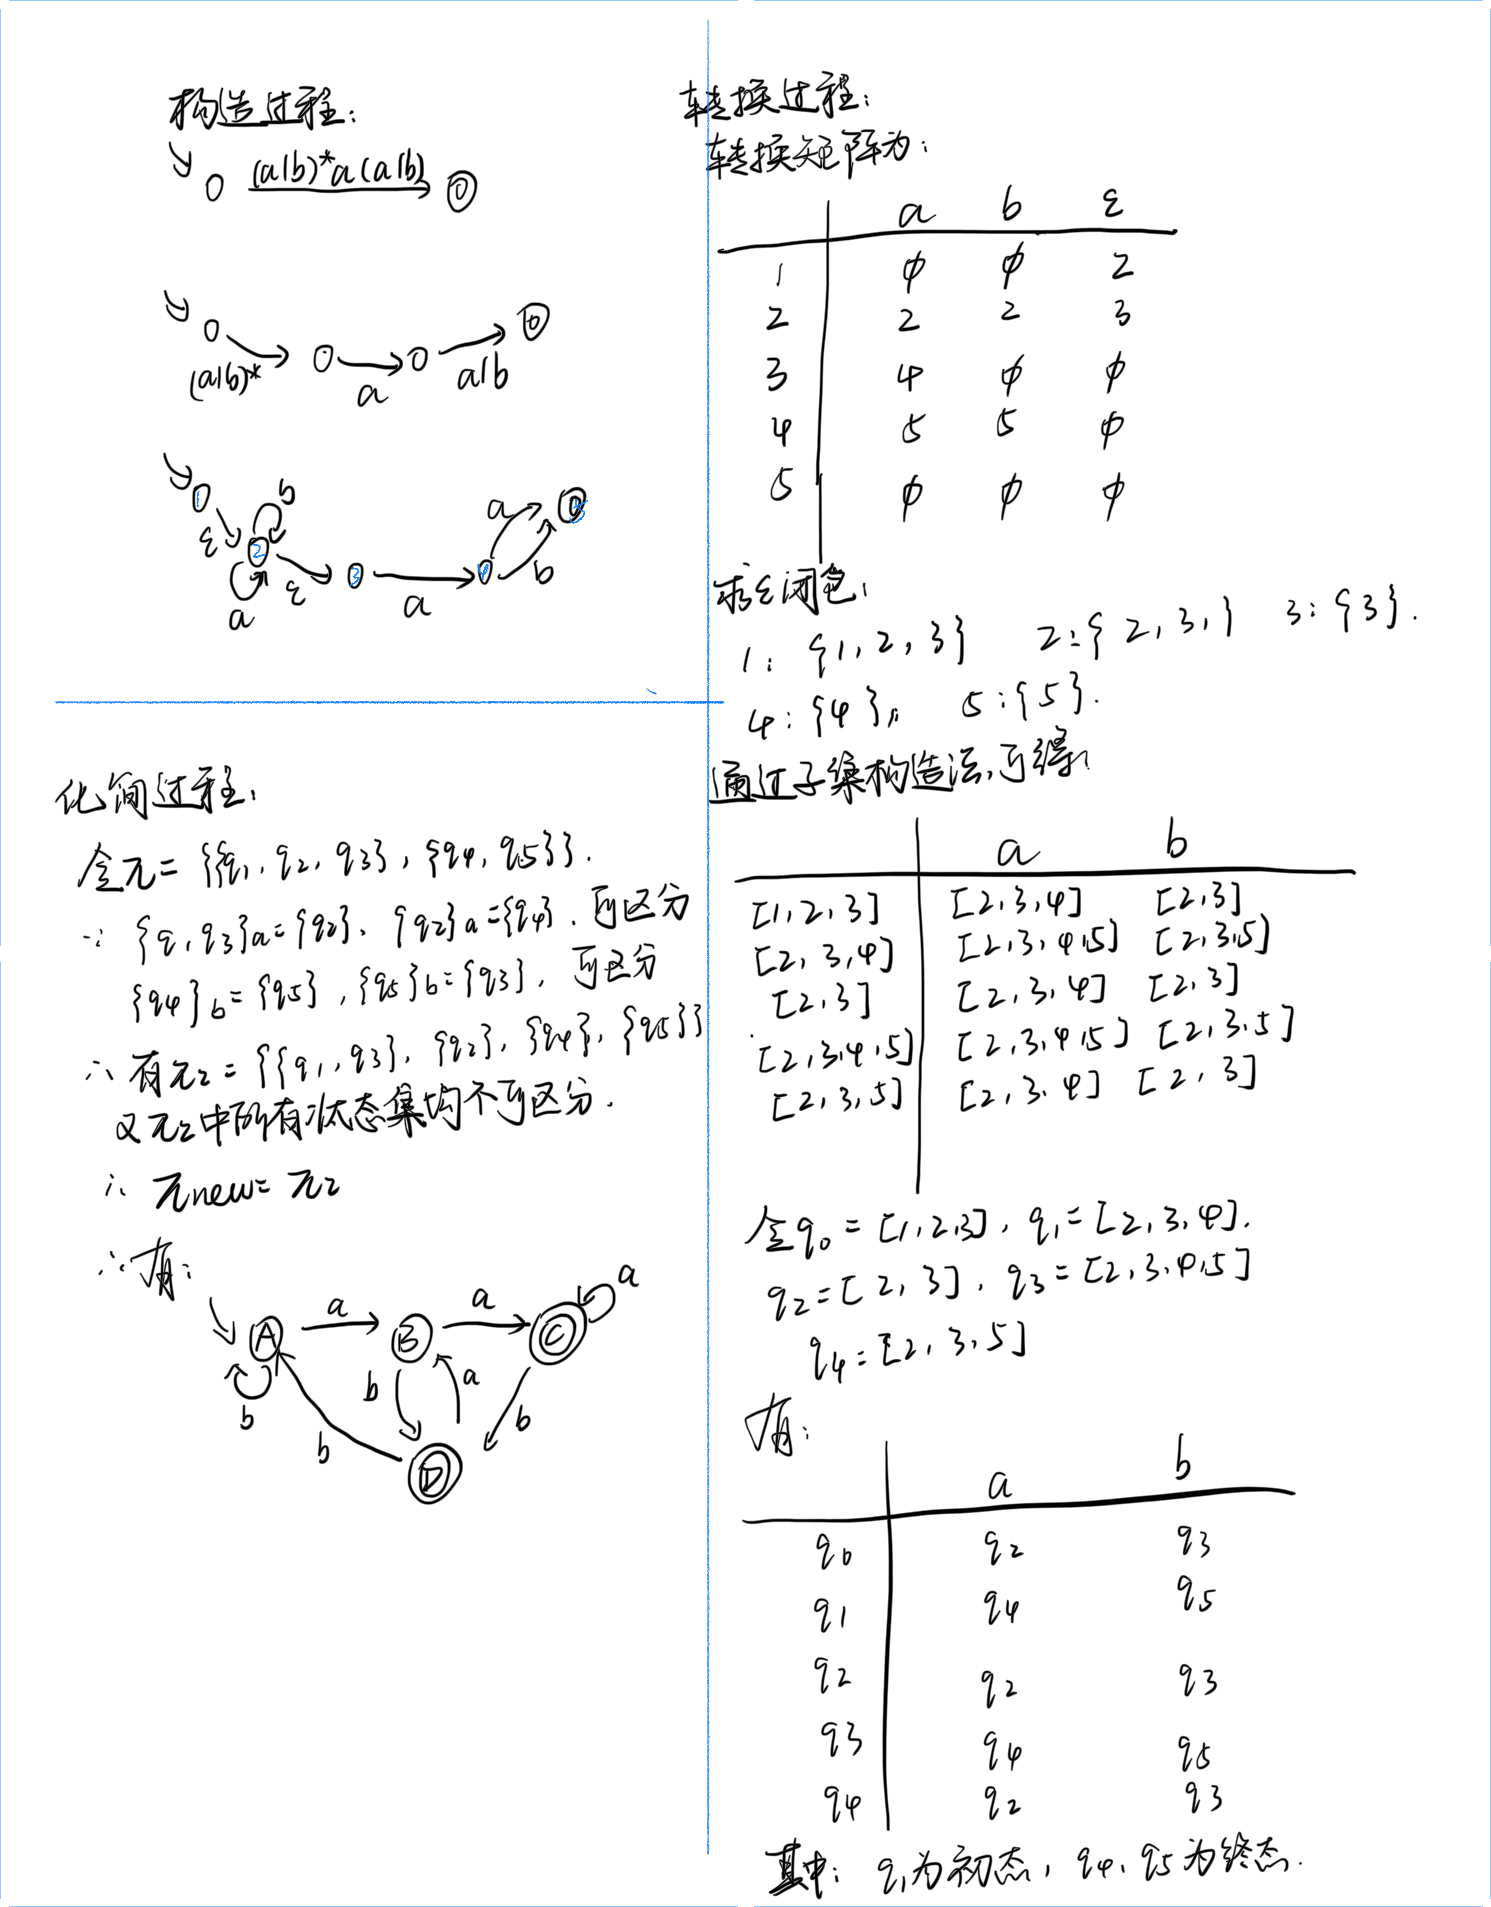 构造过程:
(a|b)*a(a|b)
(a|b)* a a|b
1 ε 2 b a ε 3 a 4 a b 5
转换过程:
转换矩阵为:
a b ε
1 φ φ 2
2 2 2 3
3 4 φ φ
4 5 5 φ
5 φ φ φ
求ε闭包:
1: {1, 2, 3} 2: { 2, 3, } 3: {3}.
4: {4}, 5: {5}.
通过子集构造法,可得:
a b
[1, 2, 3] [2,3,4] [2,3]
[2, 3,4] [2,3,4,5] [2,3,5]
[2,3] [2,3,4] [2,3]
[2,3,4,5] [2,3,4,5] [2,3,5]
[2,3,5] [2,3,4] [2,3]
令q0 = [1,2,3], q1 = [2,3,4].
q2 = [2,3], q3 = [2,3,4,5]
q4 = [2,3,5]
有:
a b
q0 q2 q3
q1 q4 q5
q2 q2 q3
q3 q4 q5
q4 q2 q3
其中: q1为初态, q4, q5为终态.
化简过程:
令π = {{q1, q2, q3}, {q4, q5}}.
∵ {q1, q3}a = {q2}, {q2}a = {q4}. 可区分
{q4}b = {q5}, {q5}b = {q3}, 可区分
∴ 有π2 = {{q1, q3}, {q2}, {q4}, {q5}}
又π2中所有状态集均不可区分.
∴ πnew = π2
∴ 有:
A a B a C a
b b a b
b D